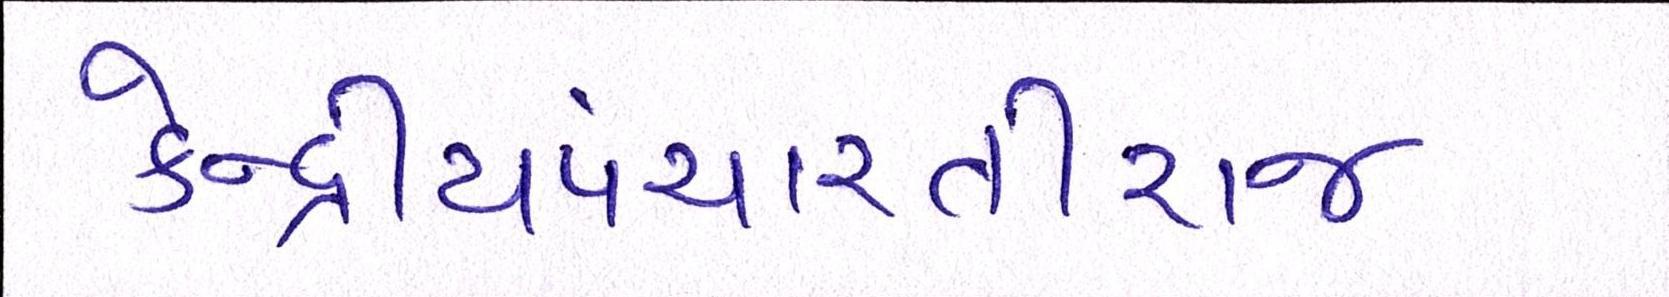 કેન્દ્રીયપંચારતીરાજ